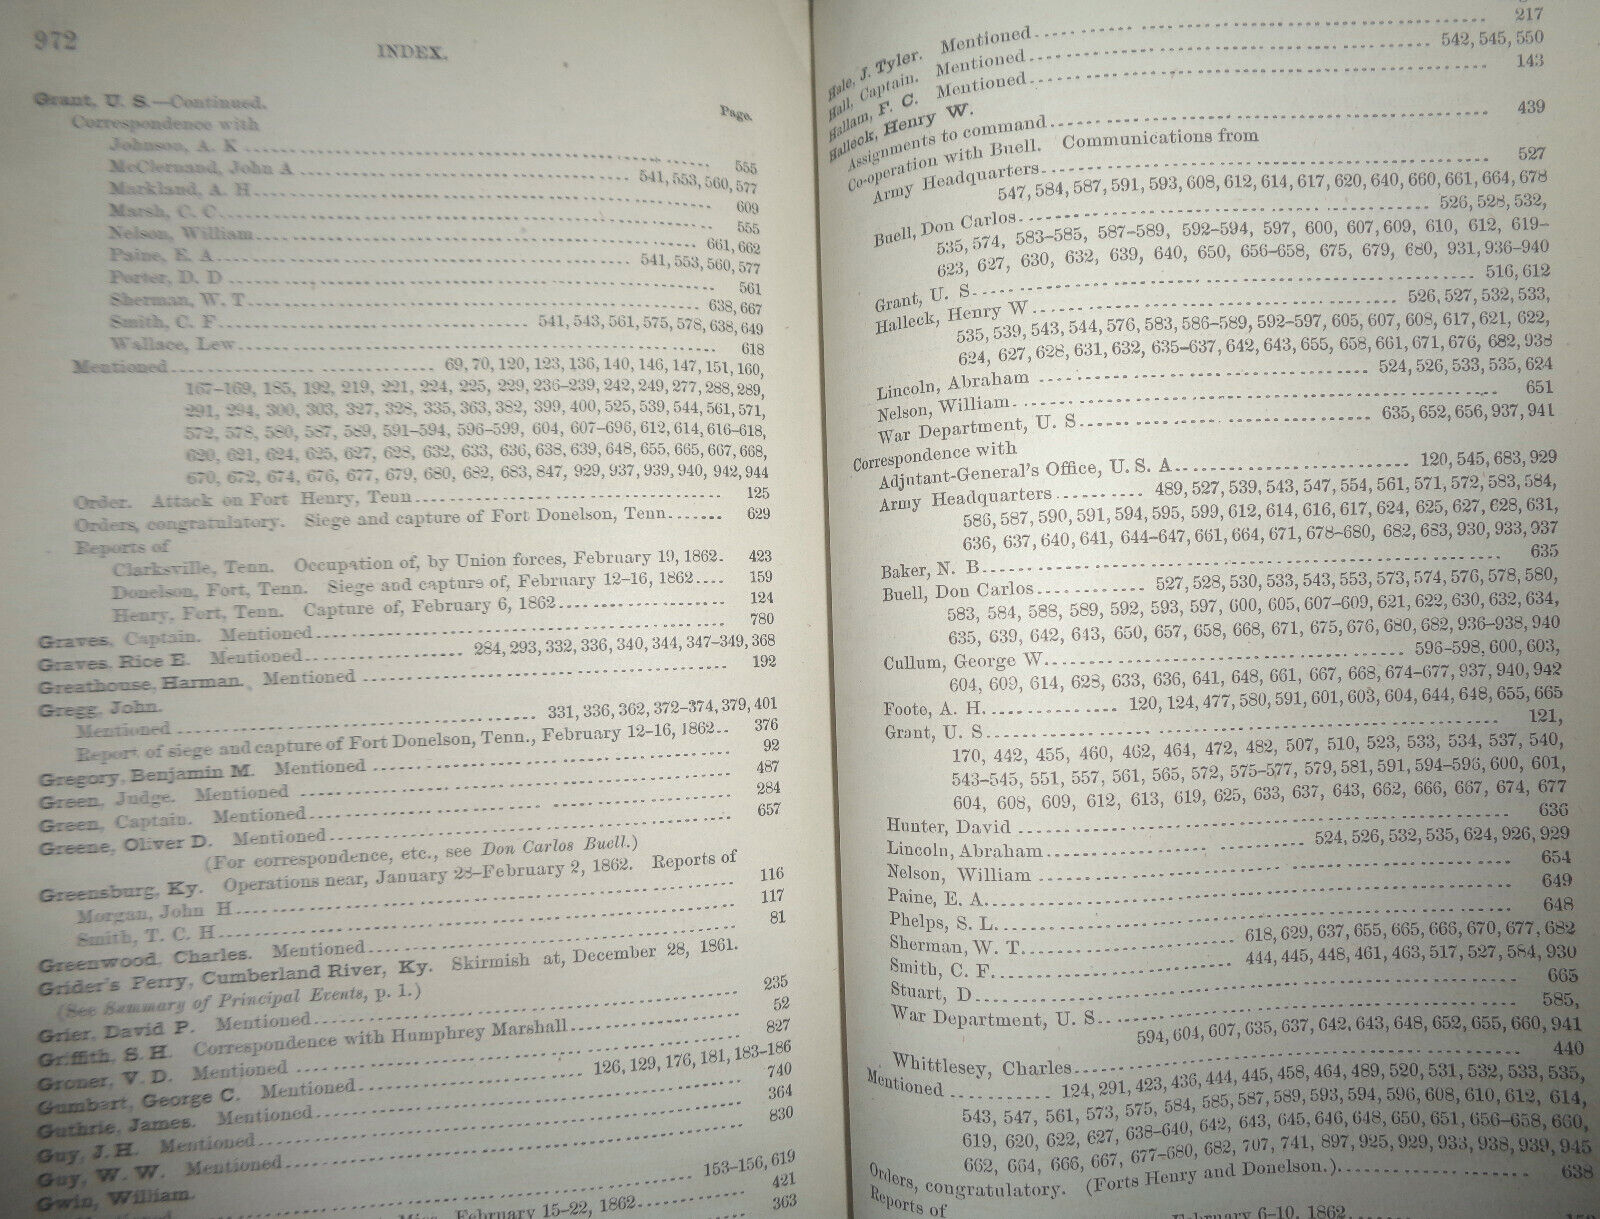 972
INDEX.
Grant, U. S.—Continued.
Page.
Correspondence with
Johnson, A. K ........ 555
McClernand, John A ........ 541, 553, 560, 577
Markland, A. H ........ 609
Marsh, C. C ........ 555
Nelson, William ........ 661, 662
Paine, E. A ........ 541, 553, 560, 577
Porter, D. D ........ 561
Sherman, W. T ........ 638, 667
Smith, C. F ........ 541, 543, 561, 575, 578, 638, 649
Wallace, Lew ........ 618
Mentioned ........ 69, 70, 120, 123, 136, 140, 146, 147, 151, 160,
167–169, 185, 192, 219, 221, 224, 225, 229, 236–239, 242, 249, 277, 288, 289,
291, 294, 300, 303, 327, 328, 335, 363, 382, 399, 400, 525, 539, 544, 561, 571,
572, 578, 580, 587, 589, 591–594, 596–599, 604, 607–696, 612, 614, 616–618,
620, 621, 624, 625, 627, 628, 632, 633, 636, 638, 639, 648, 655, 665, 667, 668,
670, 672, 674, 676, 677, 679, 680, 682, 683, 847, 929, 937, 939, 940, 942, 944
Order. Attack on Fort Henry, Tenn ........ 125
Orders, congratulatory. Siege and capture of Fort Donelson, Tenn ........ 629
Reports of
Clarksville, Tenn. Occupation of, by Union forces, February 19, 1862. 423
Donelson, Fort, Tenn. Siege and capture of, February 12–16, 1862 .... 159
Henry, Fort, Tenn. Capture of, February 6, 1862 ........ 124
Graves, Captain. Mentioned ........ 780
Graves, Rice E. Mentioned ........ 284, 293, 332, 336, 340, 344, 347–349, 368
Greathouse, Harman. Mentioned ........ 192
Gregg, John.
Mentioned ........ 331, 336, 362, 372–374, 379, 401
Report of siege and capture of Fort Donelson, Tenn., February 12–16, 1862.. 376
Gregory, Benjamin M. Mentioned ........ 92
Green, Judge. Mentioned ........ 487
Green, Captain. Mentioned ........ 284
Greene, Oliver D. Mentioned ........ 657
(For correspondence, etc., see Don Carlos Buell.)
Greensburg, Ky. Operations near, January 28–February 2, 1862. Reports of
Morgan, John H ........ 116
Smith, T. C. H ........ 117
Greenwood, Charles. Mentioned ........ 81
Grider's Ferry, Cumberland River, Ky. Skirmish at, December 28, 1861.
(See Summary of Principal Events, p. 1.)
Grier, David P. Mentioned ........ 235
Griffith, S. H. Correspondence with Humphrey Marshall ........ 52
Groner, V. D. Mentioned ........ 827
Gumbart, George C. Mentioned ........ 126, 129, 176, 181, 183–186
Guthrie, James. Mentioned ........ 740
Guy, J. H. Mentioned ........ 364
Guy, W. W. Mentioned ........ 830
Gwin, William.
153–156, 619
February 15–22, 1862 ........ 421
363
Hale, J. Tyler. Mentioned ........ 217
Hall, Captain. Mentioned ........ 542, 545, 550
Hallam, F. C. Mentioned ........ 143
Halleck, Henry W.
Assignments to command ........ 439
Co-operation with Buell. Communications from
Army Headquarters ........ 527
547, 584, 587, 591, 593, 608, 612, 614, 617, 620, 640, 660, 661, 664, 678
Buell, Don Carlos ........ 526, 528, 532,
535, 574, 583–585, 587–589, 592–594, 597, 600, 607, 609, 610, 612, 619–
623, 627, 630, 632, 639, 640, 650, 656–658, 675, 679, 680, 931, 936–940
Grant, U. S ........ 516, 612
Halleck, Henry W ........ 526, 527, 532, 533,
535, 539, 543, 544, 576, 583, 586–589, 592–597, 605, 607, 608, 617, 621, 622,
624, 627, 628, 631, 632, 635–637, 642, 643, 655, 658, 661, 671, 676, 682, 938
Lincoln, Abraham ........ 524, 526, 533, 535, 624
Nelson, William ........ 651
War Department, U. S ........ 635, 652, 656, 937, 941
Correspondence with
Adjutant-General's Office, U. S. A ........ 120, 545, 683, 929
Army Headquarters ........ 489, 527, 539, 543, 547, 554, 561, 571, 572, 583, 584,
586, 587, 590, 591, 594, 595, 599, 612, 614, 616, 617, 624, 625, 627, 628, 631,
636, 637, 640, 641, 644–647, 661, 664, 671, 678–680, 682, 683, 930, 933, 937
Baker, N. B ........ 635
Buell, Don Carlos ........ 527, 528, 530, 533, 543, 553, 573, 574, 576, 578, 580,
583, 584, 588, 589, 592, 593, 597, 600, 605, 607–609, 621, 622, 630, 632, 634,
635, 639, 642, 643, 650, 657, 658, 668, 671, 675, 676, 680, 682, 936–938, 940
Cullum, George W ........ 596–598, 600, 603,
604, 609, 614, 628, 633, 636, 641, 648, 661, 667, 668, 674–677, 937, 940, 942
Foote, A. H. ........ 120, 124, 477, 580, 591, 601, 603, 604, 644, 648, 655, 665
Grant, U. S ........ 121,
170, 442, 455, 460, 462, 464, 472, 482, 507, 510, 523, 533, 534, 537, 540,
543–545, 551, 557, 561, 565, 572, 575–577, 579, 581, 591, 594–596, 600, 601,
604, 608, 609, 612, 613, 619, 625, 633, 637, 643, 662, 666, 667, 674, 677
Hunter, David ........ 636
Lincoln, Abraham ........ 524, 526, 532, 535, 624, 926, 929
Nelson, William ........ 654
Paine, E. A ........ 649
Phelps, S. L. ........ 648
Sherman, W. T ........ 618, 629, 637, 655, 665, 666, 670, 677, 682
Smith, C. F. ........ 444, 445, 448, 461, 463, 517, 527, 584, 930
Stuart, D ........ 665
War Department, U. S ........ 585,
594, 604, 607, 635, 637, 642, 643, 648, 652, 655, 660, 941
Whittlesey, Charles ........ 440
Mentioned ........ 124, 291, 423, 436, 444, 445, 458, 464, 489, 520, 531, 532, 533, 535,
543, 547, 561, 573, 575, 584, 585, 587, 589, 593, 594, 596, 608, 610, 612, 614,
619, 620, 622, 627, 638–640, 642, 643, 645, 646, 648, 650, 651, 656–658, 660,
662, 664, 666, 667, 677–680, 682, 707, 741, 897, 925, 929, 933, 938, 939, 945
Orders, congratulatory. (Forts Henry and Donelson.) ........ 638
Reports of
February 6–10, 1862